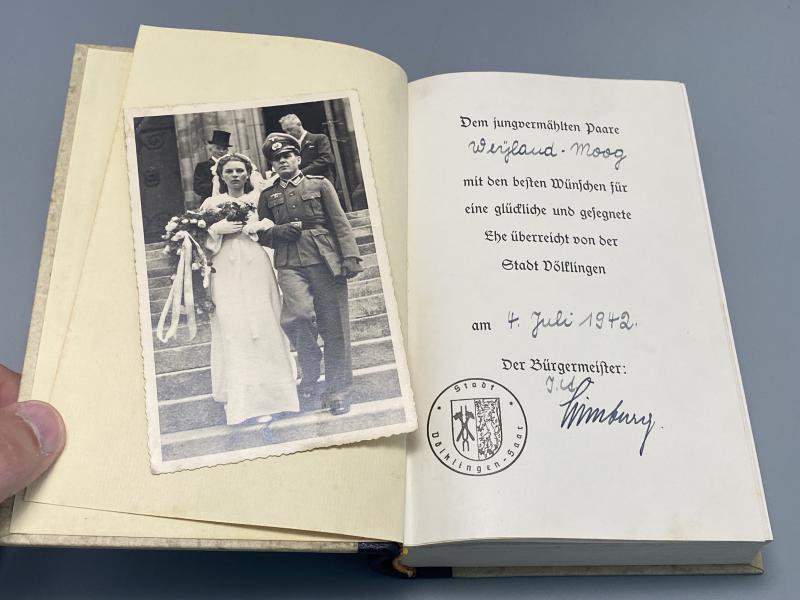 Dem jungvermählten Paare
Weyland - Moog
mit den besten Wünschen für
eine glückliche und gesegnete
Ehe überreicht von der
Stadt Völklingen
am 4. Juli 1942.
Der Bürgermeister:
Stadt
Völklingen-Saar